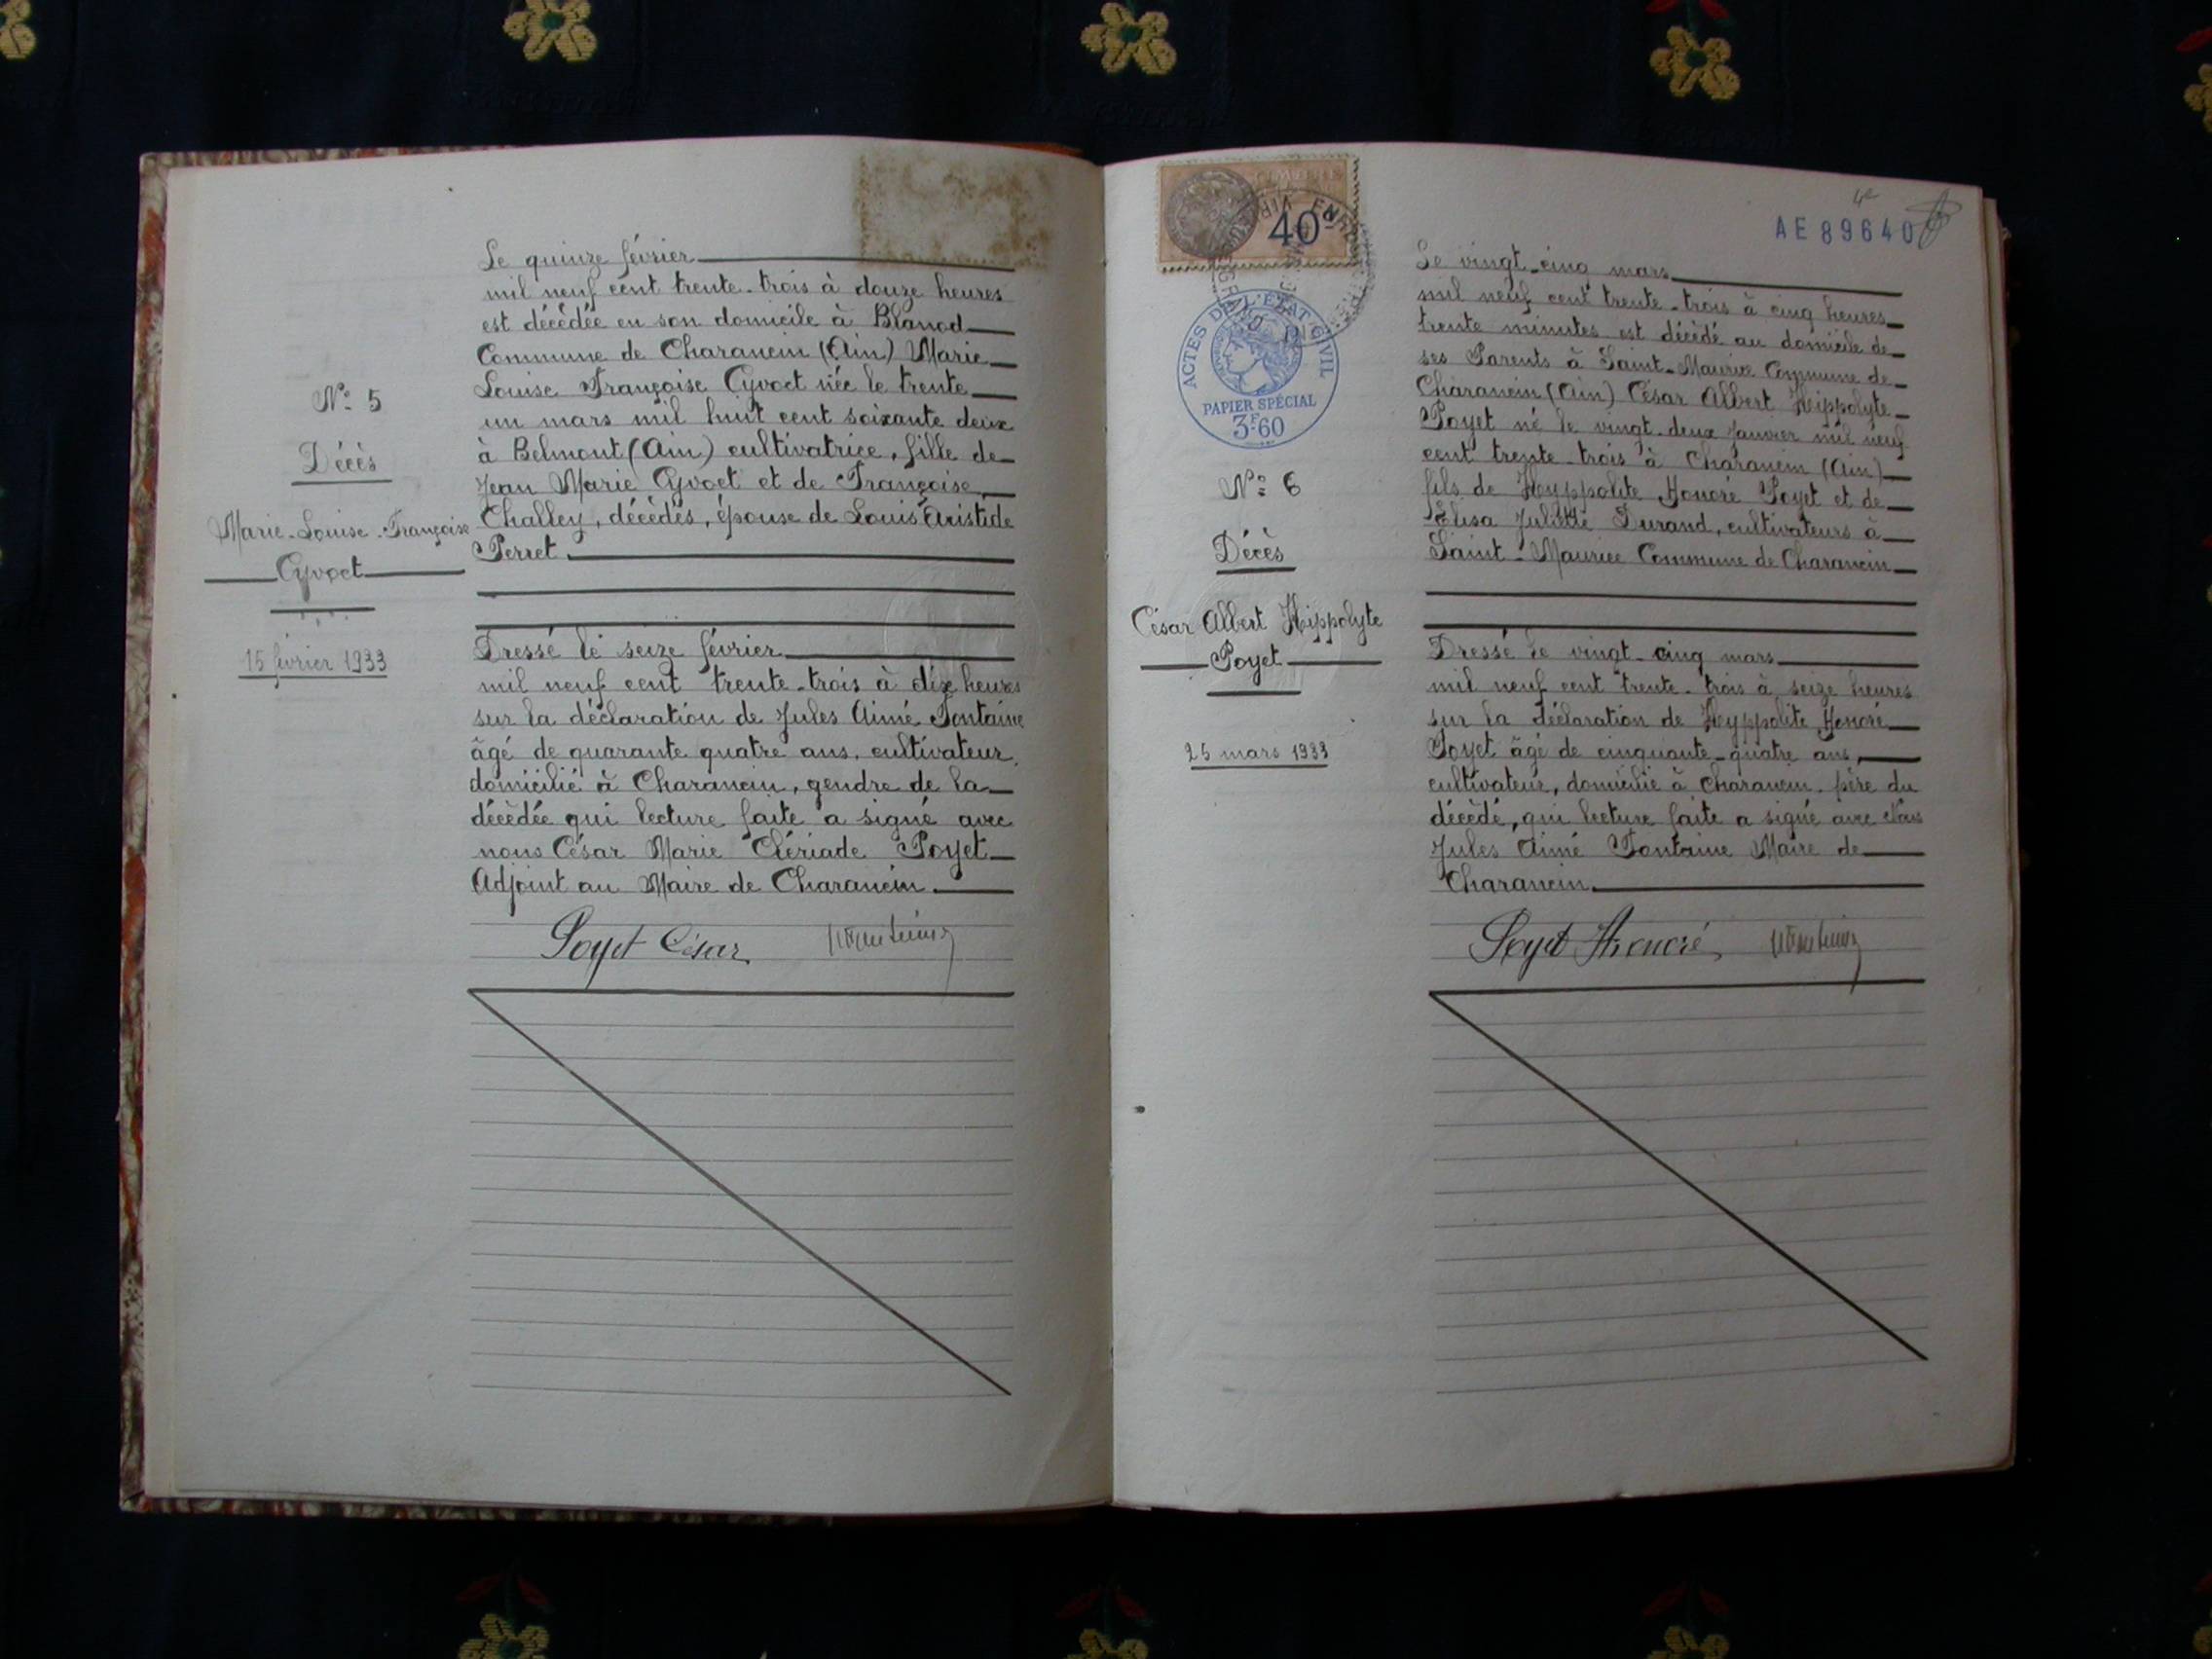 Le quinze février
mil neuf cent trente-trois à douze heures
est décèdée en son domicile à Blanod
Commune de Charancin (Ain) Marie
Louise Françoise Gyvoct née le trente
un mars mil huit cent soixante deux
à Belmont (Ain) cultivatrice, fille de
Jean Marie Gyvoct et de Françoise
Challey, décèdés, épouse de Louis Aristide
Perret
N° 5
Décès
Marie-Louise-Françoise
Gyvoct
15 février 1933
Dressé le seize février
mil neuf cent trente-trois à dix heures
sur la déclaration de Jules Aimé Fontaine
âgé de quarante quatre ans, cultivateur,
domicilié à Charancin, gendre de la
décèdée qui lecture faite a signé avec
nous César Marie Clériade Poyet
Adjoint au Maire de Charancin.
Poyet César
40
AE 89640
ACTES DE L'ÉTAT CIVIL
PAPIER SPÉCIAL
3F60
Le vingt-cinq mars
mil neuf cent trente-trois à cinq heures
trente minutes est décèdé au domicile de
ses Parents à Saint-Maurice Commune de
Charancin (Ain) César Albert Hippolyte
Poyet né le vingt-deux Janvier mil neuf
cent trente-trois à Charancin (Ain)
fils de Hyppolite Honoré Poyet et de
Elisa Juliette Durand, cultivateurs à
Saint-Maurice Commune de Charancin
N° 6
Décès
César Albert Hippolyte
Poyet
25 mars 1933
Dressé le vingt-cinq mars
mil neuf cent trente-trois à seize heures
sur la déclaration de Hyppolite Honoré
Poyet âgé de cinquante-quatre ans,
cultivateur, domicilié à Charancin, père du
décèdé, qui lecture faite a signé avec Nous
Jules Aimé Fontaine Maire de
Charancin
Poyet Honoré